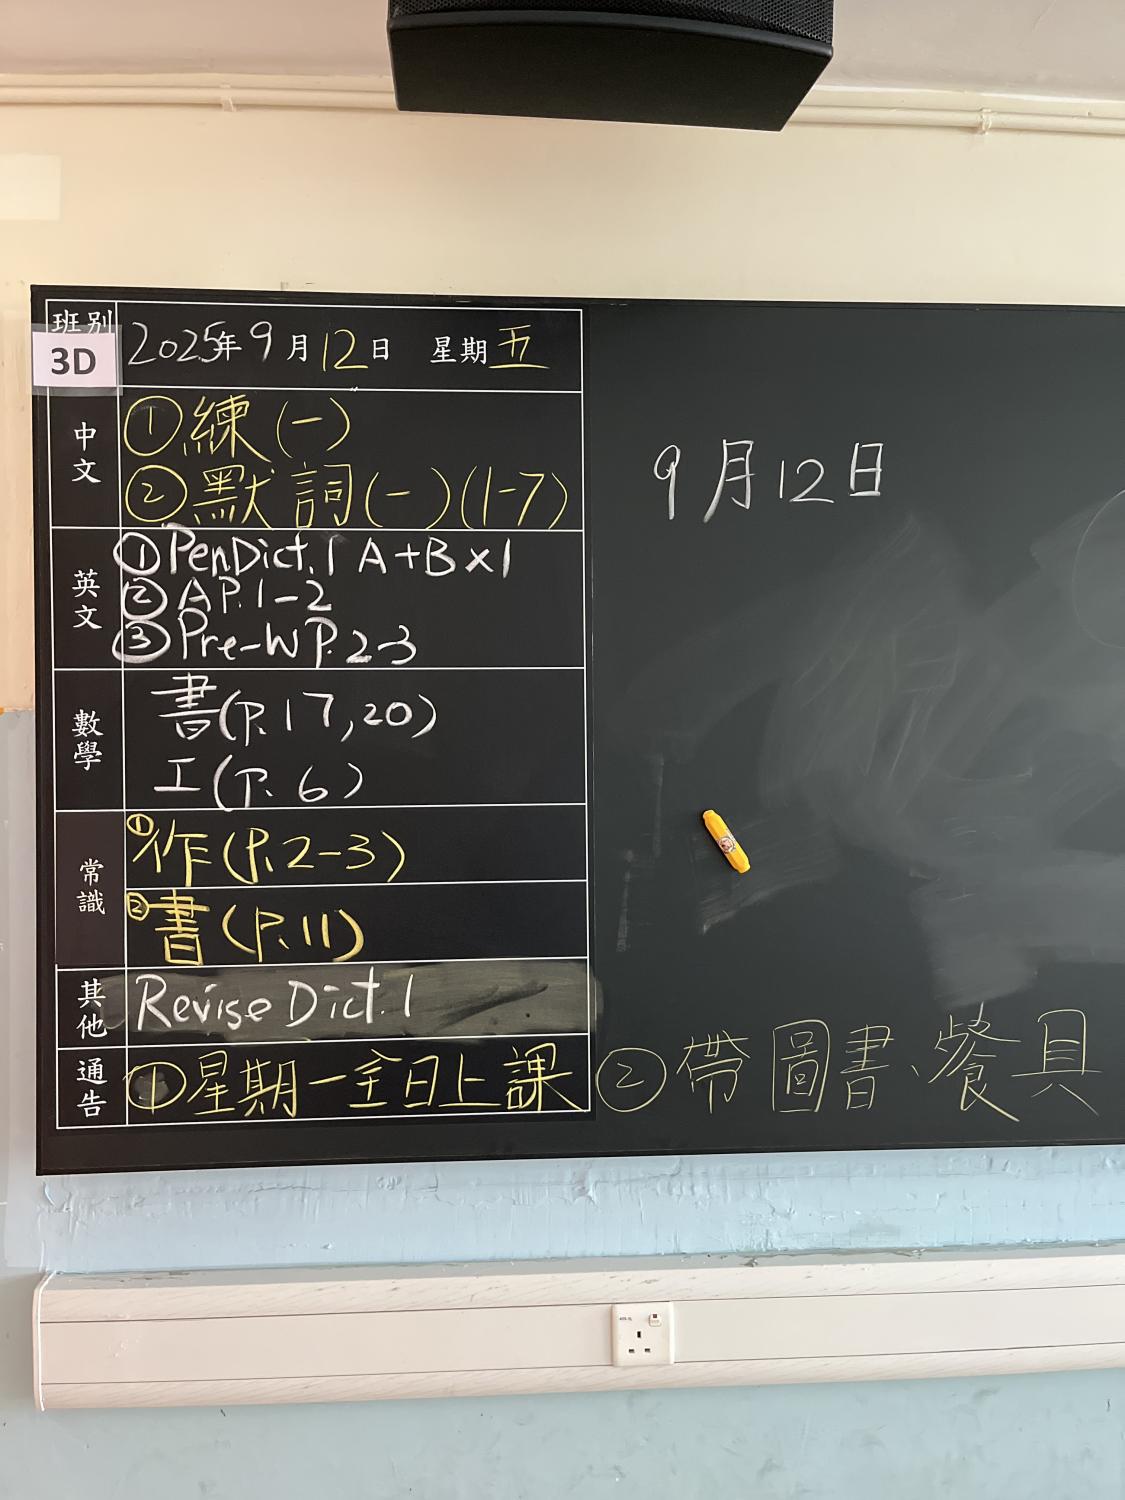 班別
3D
2025年9月12日 星期五
中文
①練(一)
②默詞(一)(1-7)
英文
①PenDict.1 A+B×1
②AP.1-2
③Pre-WP.2-3
數學
書(P.17,20)
工(P.6)
常識
①作(P.2-3)
②書(P.11)
其他
Revise Dict.1
通告
①星期一全日上課 ②帶圖書、餐具
9月12日